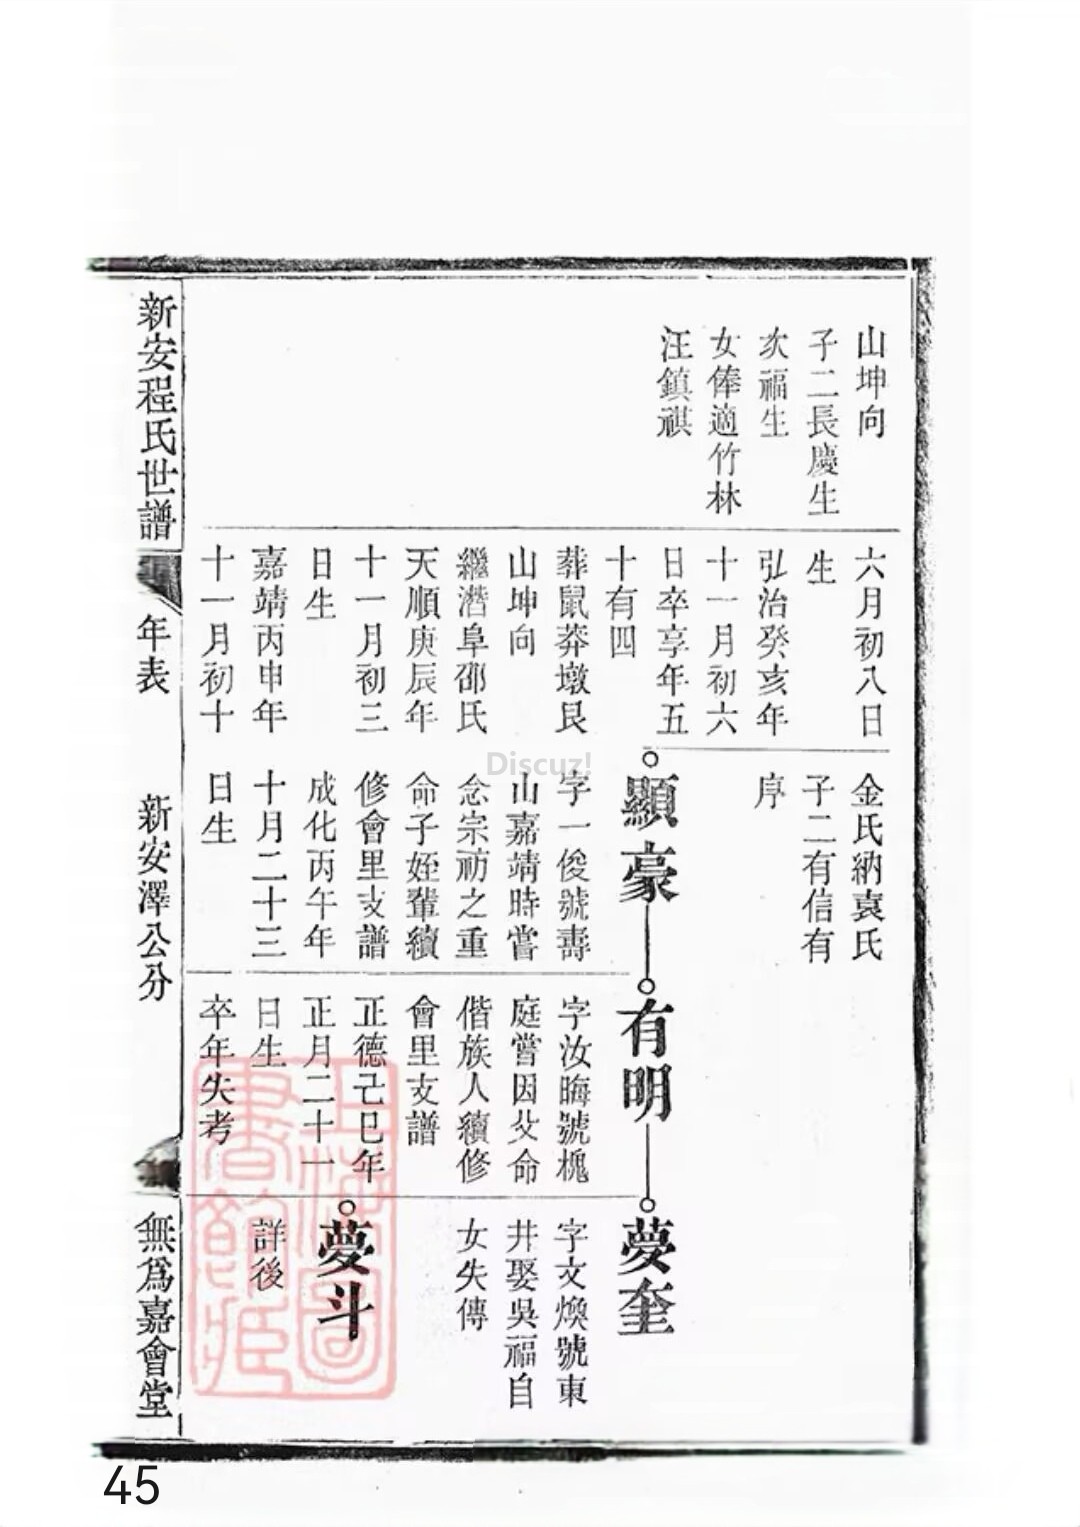 山坤向
子二長慶生
次福生
女俸適竹林
汪鎮祺
六月初八日
生
弘治癸亥年
十一月初六
日卒享年五
十有四
葬鼠莽墩艮
山坤向
繼潛阜邵氏
天順庚辰年
十一月初三
日生
嘉靖丙申年
十一月初十
金氏納袁氏
子二有信有
序
顯豪
字一俊號壽
山嘉靖時嘗
念宗祊之重
命子姪輩續
修會里支譜
成化丙午年
十月二十三
日生
有明
字汝晦號槐
庭嘗因父命
偕族人續修
會里支譜
正德己巳年
正月二十一
日生
卒年失考
夢奎
字文煥號東
井娶吳福自
女失傳
夢斗
詳後
新安程氏世譜
年表
新安澤公分
無爲嘉會堂
Discuz!
45